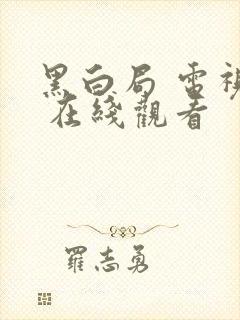 黑白局 電視
在綫觀看
羅志勇